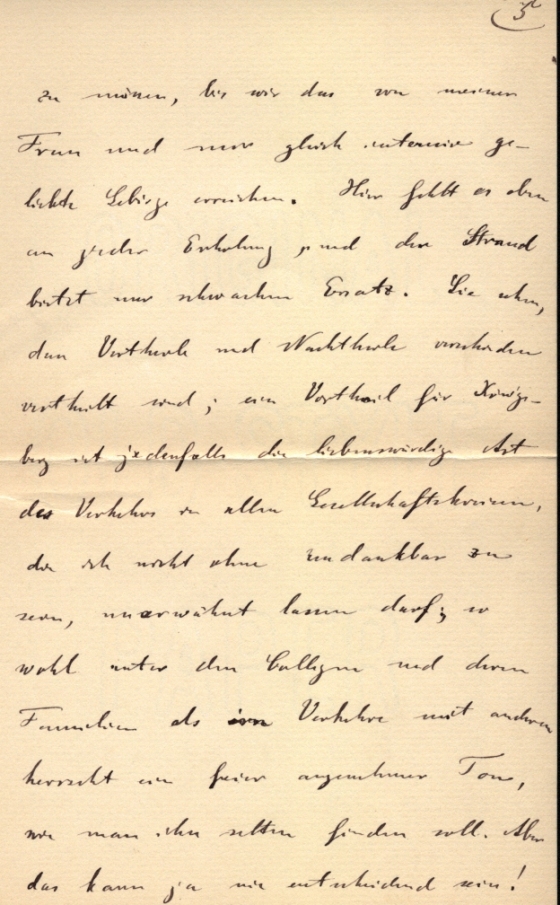 3
zu müssen, bis wir das von meiner
Frau und mir gleich intensiv ge-
liebte Gebirge erreichen. Hier fehlt es eben
an jeder Erholung, und der Strand
bietet nur schwachen Ersatz. Sie sehen,
dass Vortheile und Nachtheile verschieden
vertheilt sind; ein Vortheil für Königs-
berg ist jedenfalls die liebenswürdige Art
des Verkehrs in allen Gesellschaftskreisen,
die ich nicht ohne undankbar zu
sein, unerwähnt lassen darf; so
wohl unter den Collegen und deren
Familien als im Verkehre mit anderen
herrscht ein freier angenehmer Ton,
wie man ihn selten finden soll. Aber
das kann ja nie entscheidend sein!